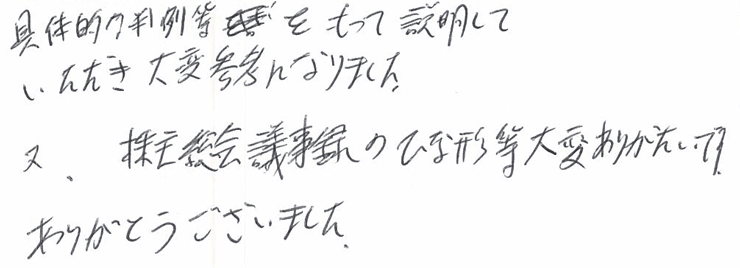 具体的な判例等をもって説明して
いただき大変参考になりました。
又、株主総会議事録のひな形等大変ありがたいです。
ありがとうございました。